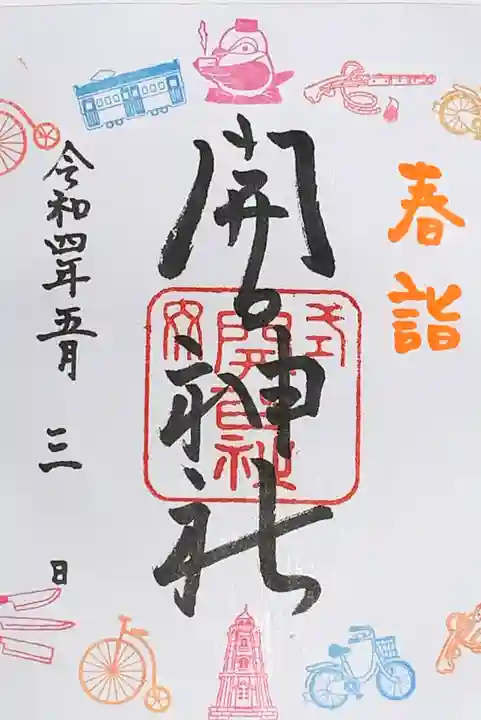 春詣
開口神社
令和四年五月三日